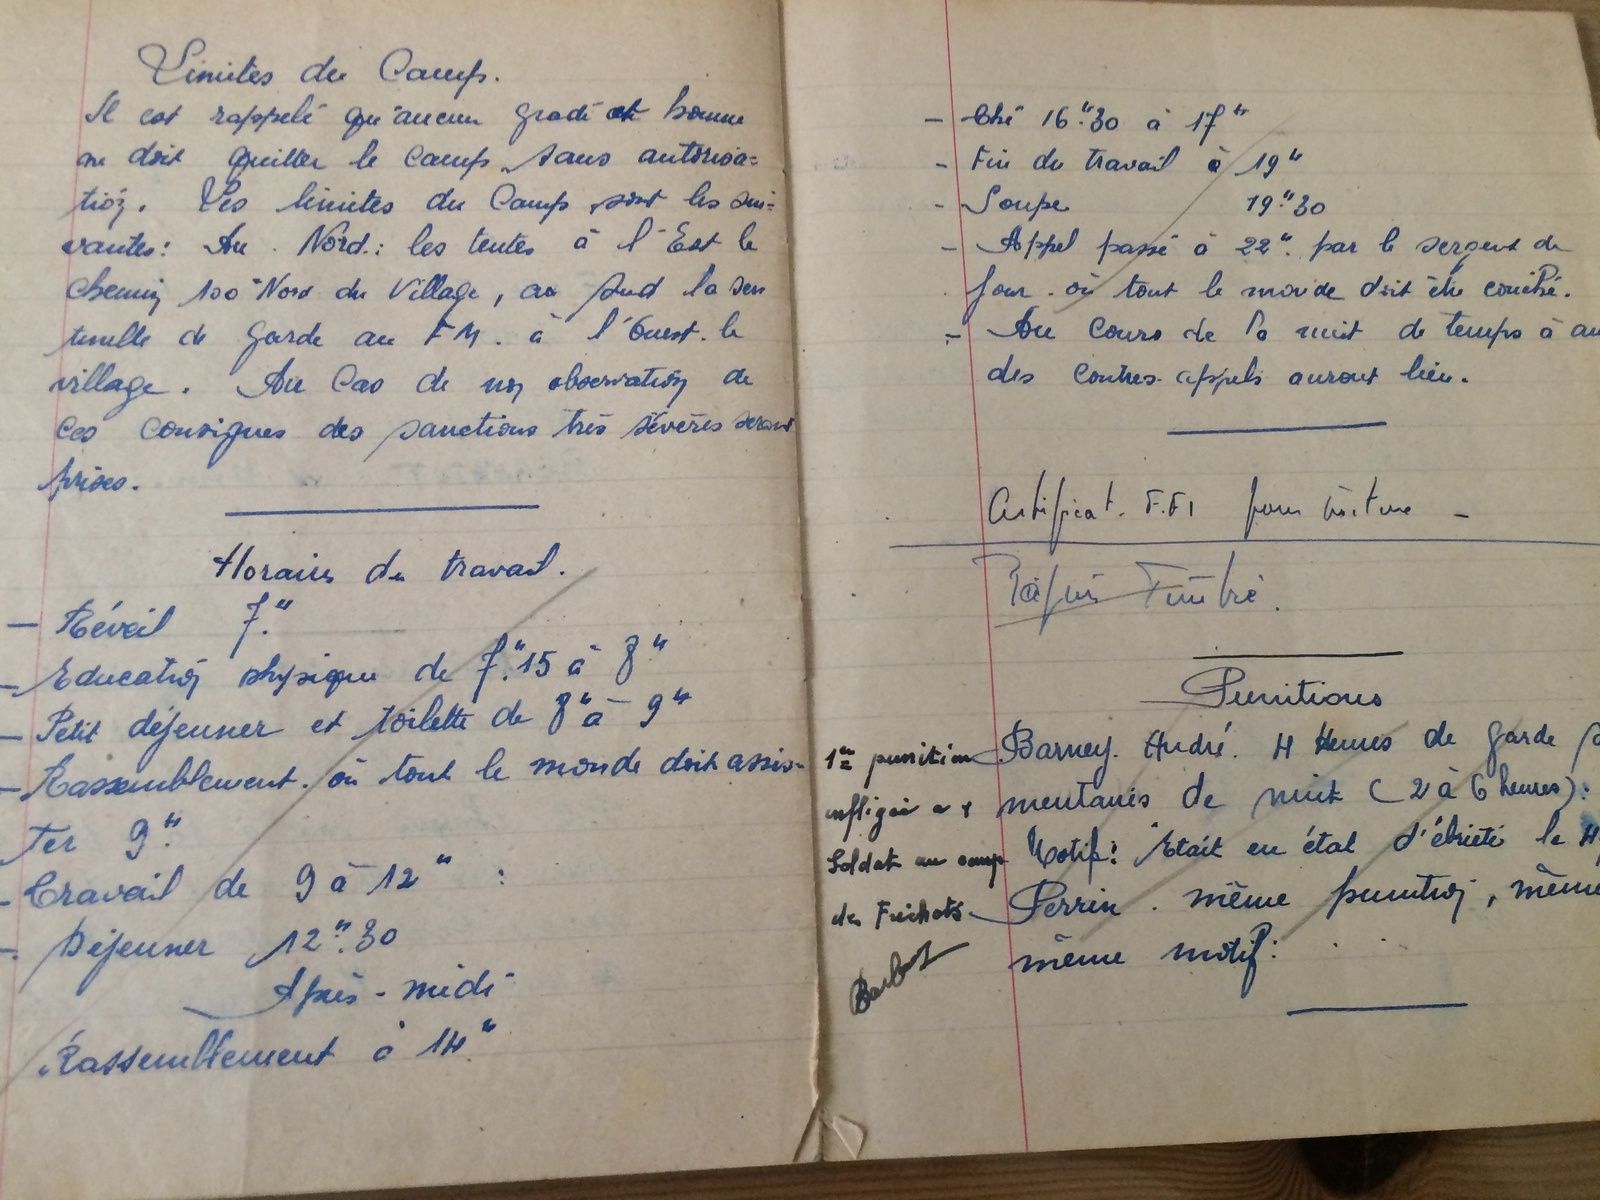 Limites du Camp.
Il est rappelé qu'aucun gradé et homme
ne doit quitter le camp sans autorisa=
tion. Les limites du Camp sont les sui=
vantes: Au Nord: les tentes à l'Est le
chemin 100 Nord du Village, au Sud la sen
tinelle de garde au F M. à l'Ouest. le
village. Au Cas de non observation de
ces consignes des sanctions très sévères seront
prises.
Horaires du travail.
- Réveil 7."
- Education physique de 7."15 à 8"
- Petit déjeuner et toilette de 8" à 9"
- Rassemblement. où tout le monde doit assis-
ter 9"
- Travail de 9 à 12" :
- Déjeuner 12".30
Après-midi
Rassemblement à 14"
- Thé 16".30 à 17"
- Fin du travail à 19"
- Soupe 19".30
- Appel passé à 22". par le sergent de
jour. où tout le monde doit être couché.
- Au cours de la nuit de temps à au
des contres-appels auront lieu.
Certificat. F.F.I pour voiture -
Papier Timbré.
Punitions
Barney. André. 4 Heures de garde
mentaires de nuit (2 à 6 heures):
Motif: Etait en état d'ébriété le
Perrin. même punition, même
même motif:
1ère punition
infligée a 1
Soldat au camp
des Fréchots.
Barbot